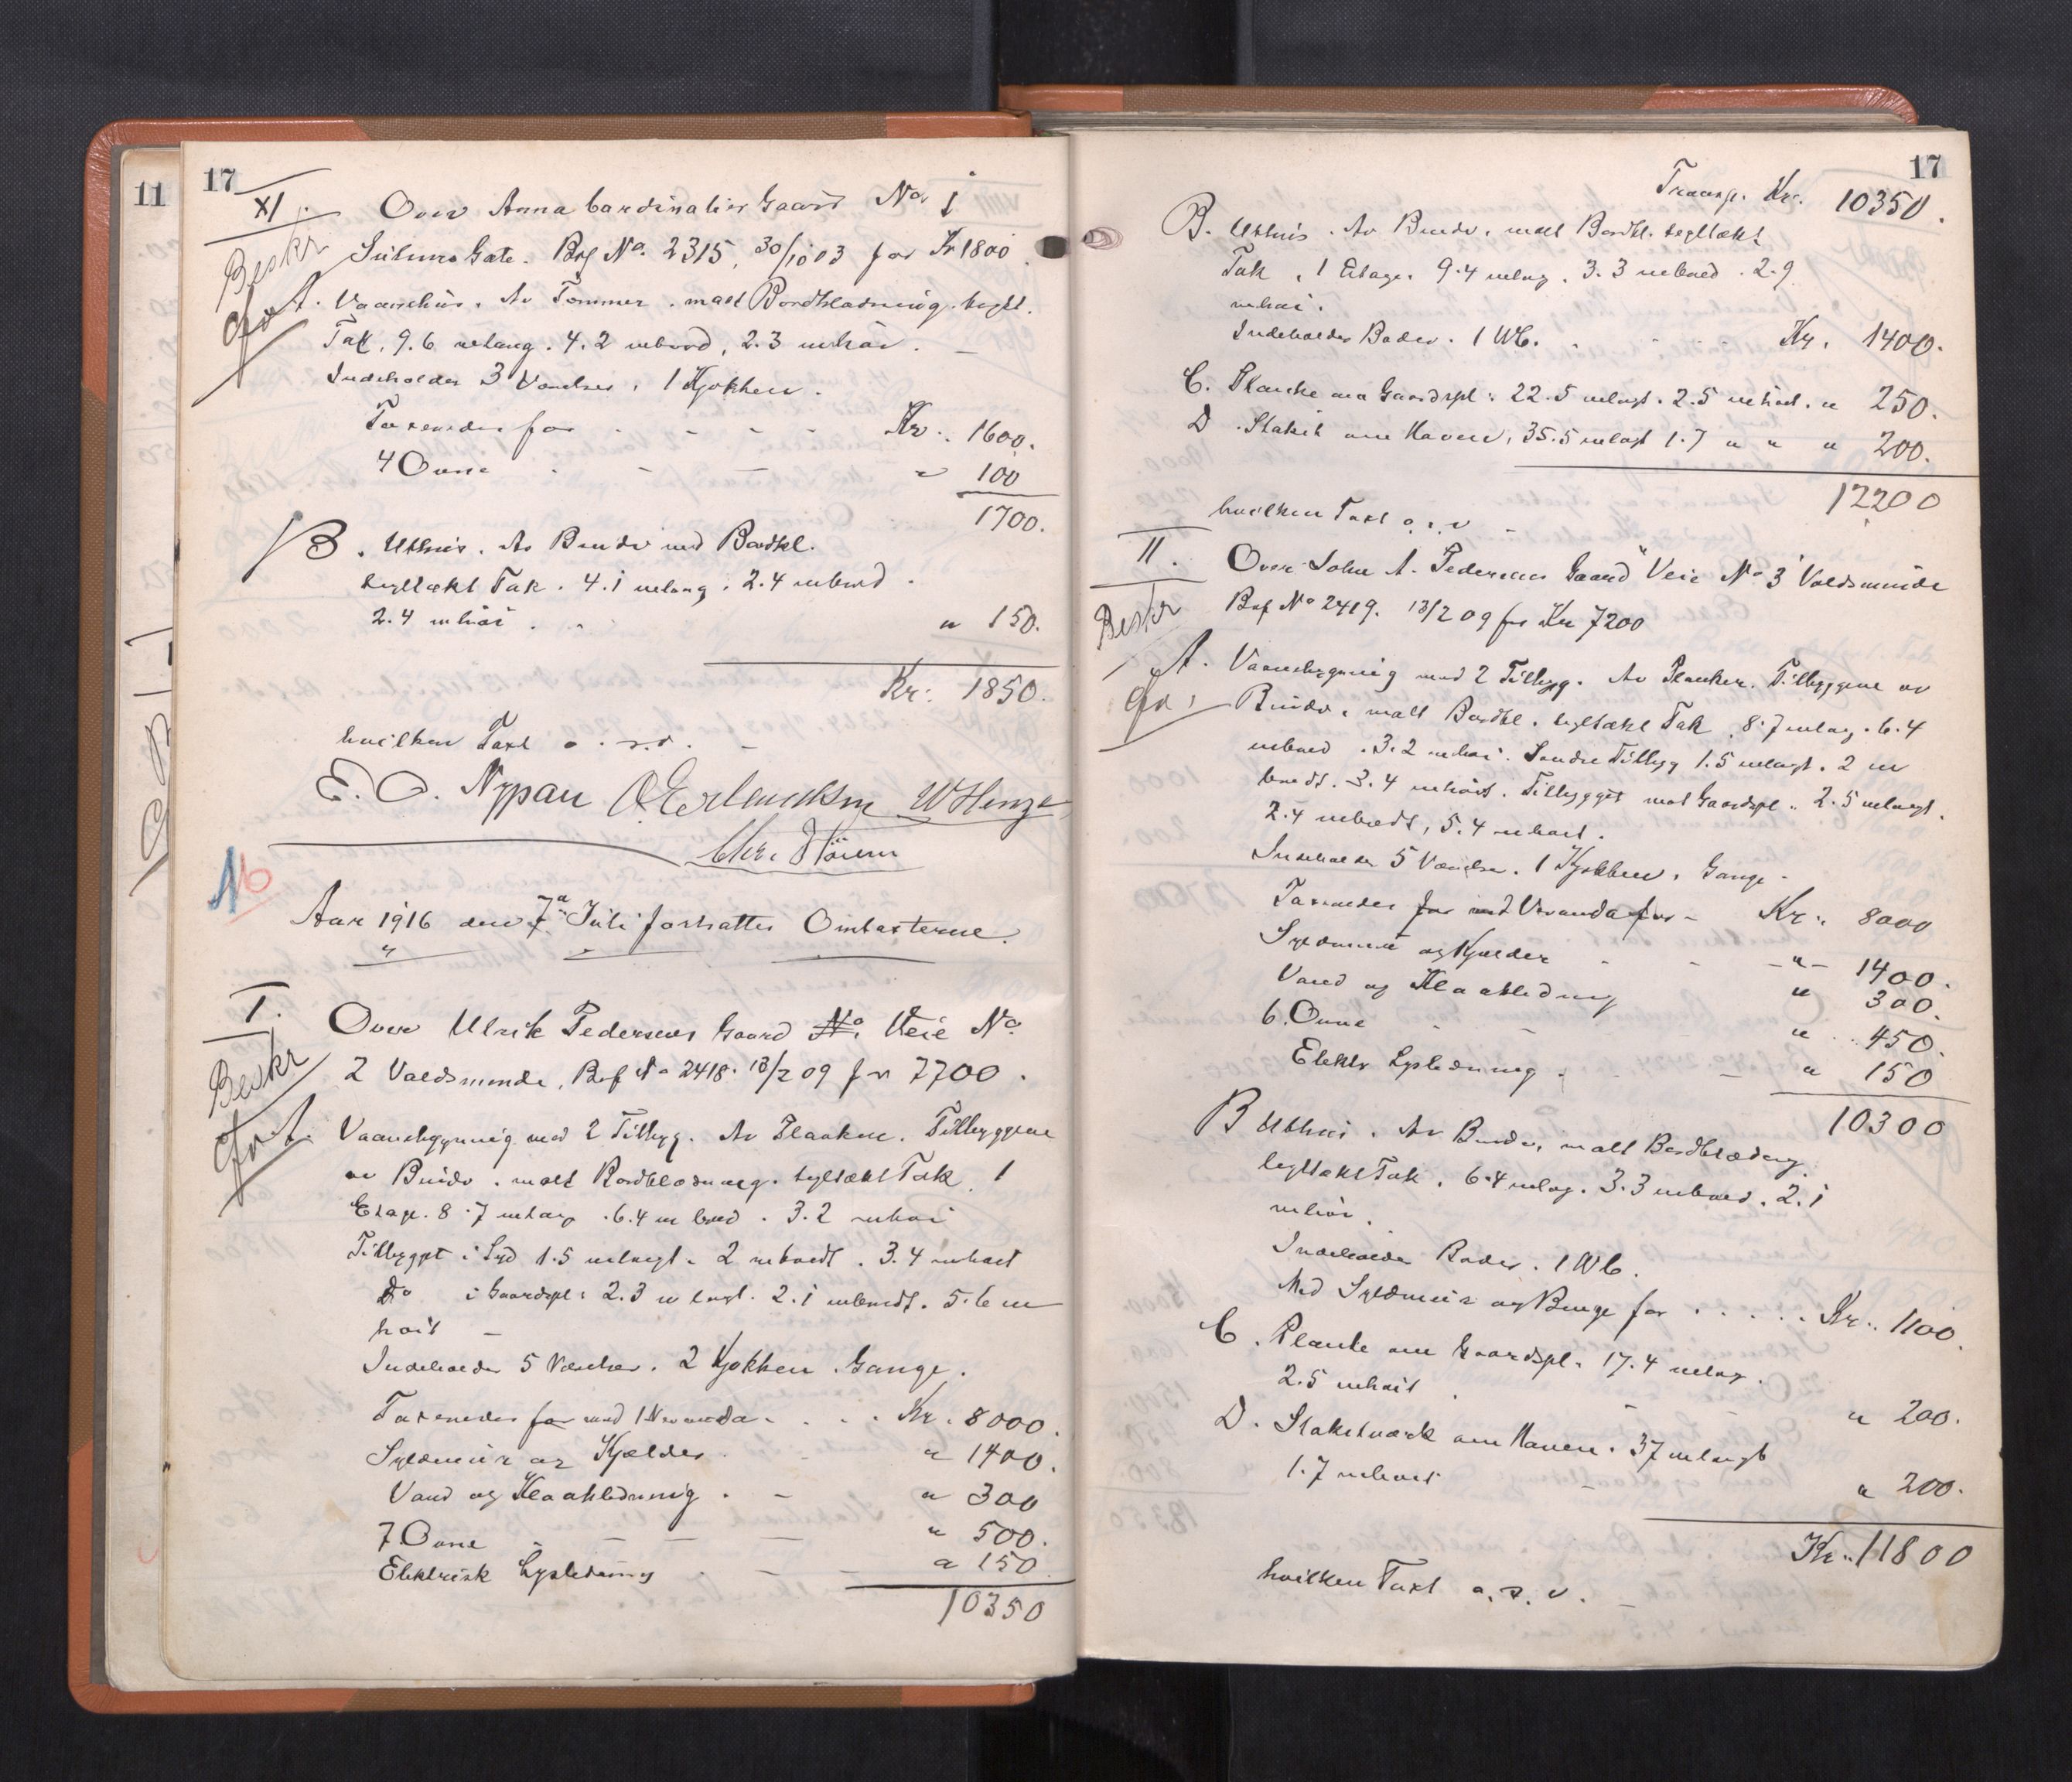 11
17
XI.
Over Anna Cardinalier Gaard No 1
Beskr
Suhms Gate. Bef No. 2315, 30/10 03 for Kr 1800.
gfr A. Vaanehus. Av Tømmer. malt Bordklædning. teglt.
Tak, 9.6 m lang. 4.2 m bred, 2.3 m høi. –
Indeholder 3 Værelser, 1 Kjøkken.
Taxeredes for - - - - Kr. 1600.
4 Ovne - - - " 100
1700.
B. Uthus. Av Bindv med Bordkl.
tegltækt Tak. 4.1 m lang. 2.4 m bred.
2.4 m høi . . " 150.
Kr. 1850.
hvilken Taxt o. s. v. –
E. O. Nypan O Erlandsen W Hinze
Chr. Stören
No
Aar 1916 den 7de Juli fortsattes Omtaxterne.
I.
Over Ulrik Pedersens Gaard No. Veie No
Beskr
2 Voldsminde, Bef No 2418. 13/2 09 for 7700.
gfr A. Vaanebygning med 2 Tilbyg. Av Planker. Tilbyggene
av Bindv. malt Bordklædning. tegltækt Tak. 1
Etage. 8.7 m lang. 6.4 m bred. 3.2 m høi
Tilbygget i Syd 1.5 m langt. 2 m bredt. 3.4 m høit
Do i Gaardspl. 2.3 m langt. 2.1 m bredt. 5.6 m
høit –
Indeholder 5 Værelser. 2 Kjøkken. Gange.
Taxeredes for med 1 Veranda. . . . Kr. 8000.
Syldmur og Kjælder. - " 1400.
Vand og Kloakledning. - " 300
7 Ovne - - - " 500.
Elektrisk Lysledning . - - " 150
10350
17
Transp. Kr. 10350.
B. Uthus. Av Bindv. malt Bordkl. tegltækt
Tak, 1 Etage. 9.4 m lang. 3.3 m bred. 2.9
m høi.
Indeholder Boder. 1 WC. . - - Kr. 1400.
C. Planke om Gaardspl. 22.5 m langt. 2.5 m høit. " 250.
D. Stakit om Haven, 35.5 m langt 1.7 " " " 200.
12200
hvilken Taxt o. s. v –
II.
Over John A. Pedersens Gaard Veie No 3 Voldsminde
Beskr
Bef No 2419. 13/2 09 for Kr 7200
A. Vaanebygning med 2 Tilbyg. Av Planker. Tilbyggene av
gfr.
Bindv. malt Bordkl. tegltækt Tak. 8.7 m lang. 6.4
m bred. 3.2 m høi. Søndre Tilbyg 1.5 m langt. 2 m
bredt. 3.4 m høit. Tilbygget mot Gaardspl. 2.5 m langt.
2.4 m bredt, 5.4 m høit.
Indeholder 5 Værelser. 1 Kjøkken, Gange –
Taxeredes for med Veranda for – Kr. 8000
Syldmur og Kjælder - - " 1400.
Vand og Kloakledning " 300.
6. Ovne - - " 450.
Elektr Lysledning . - " 150
10300
B Uthus. Av Bindv. malt Bordklædning.
tegltækt Tak. 6.4 m lang. 3.3 m bred. 2.1
m høi.
Indeholder Boder. 1 WC.
Med Syldmur og Binge for . . . . Kr. 1100.
C. Planke om Gaardspl. 17.4 m lang.
2.5 m høit . - " 200.
D. Stakitværk om Haven. 37 m langt
1.7 m høit - " 200.
Kr. 11800
hvilken Taxt o. s. v. –